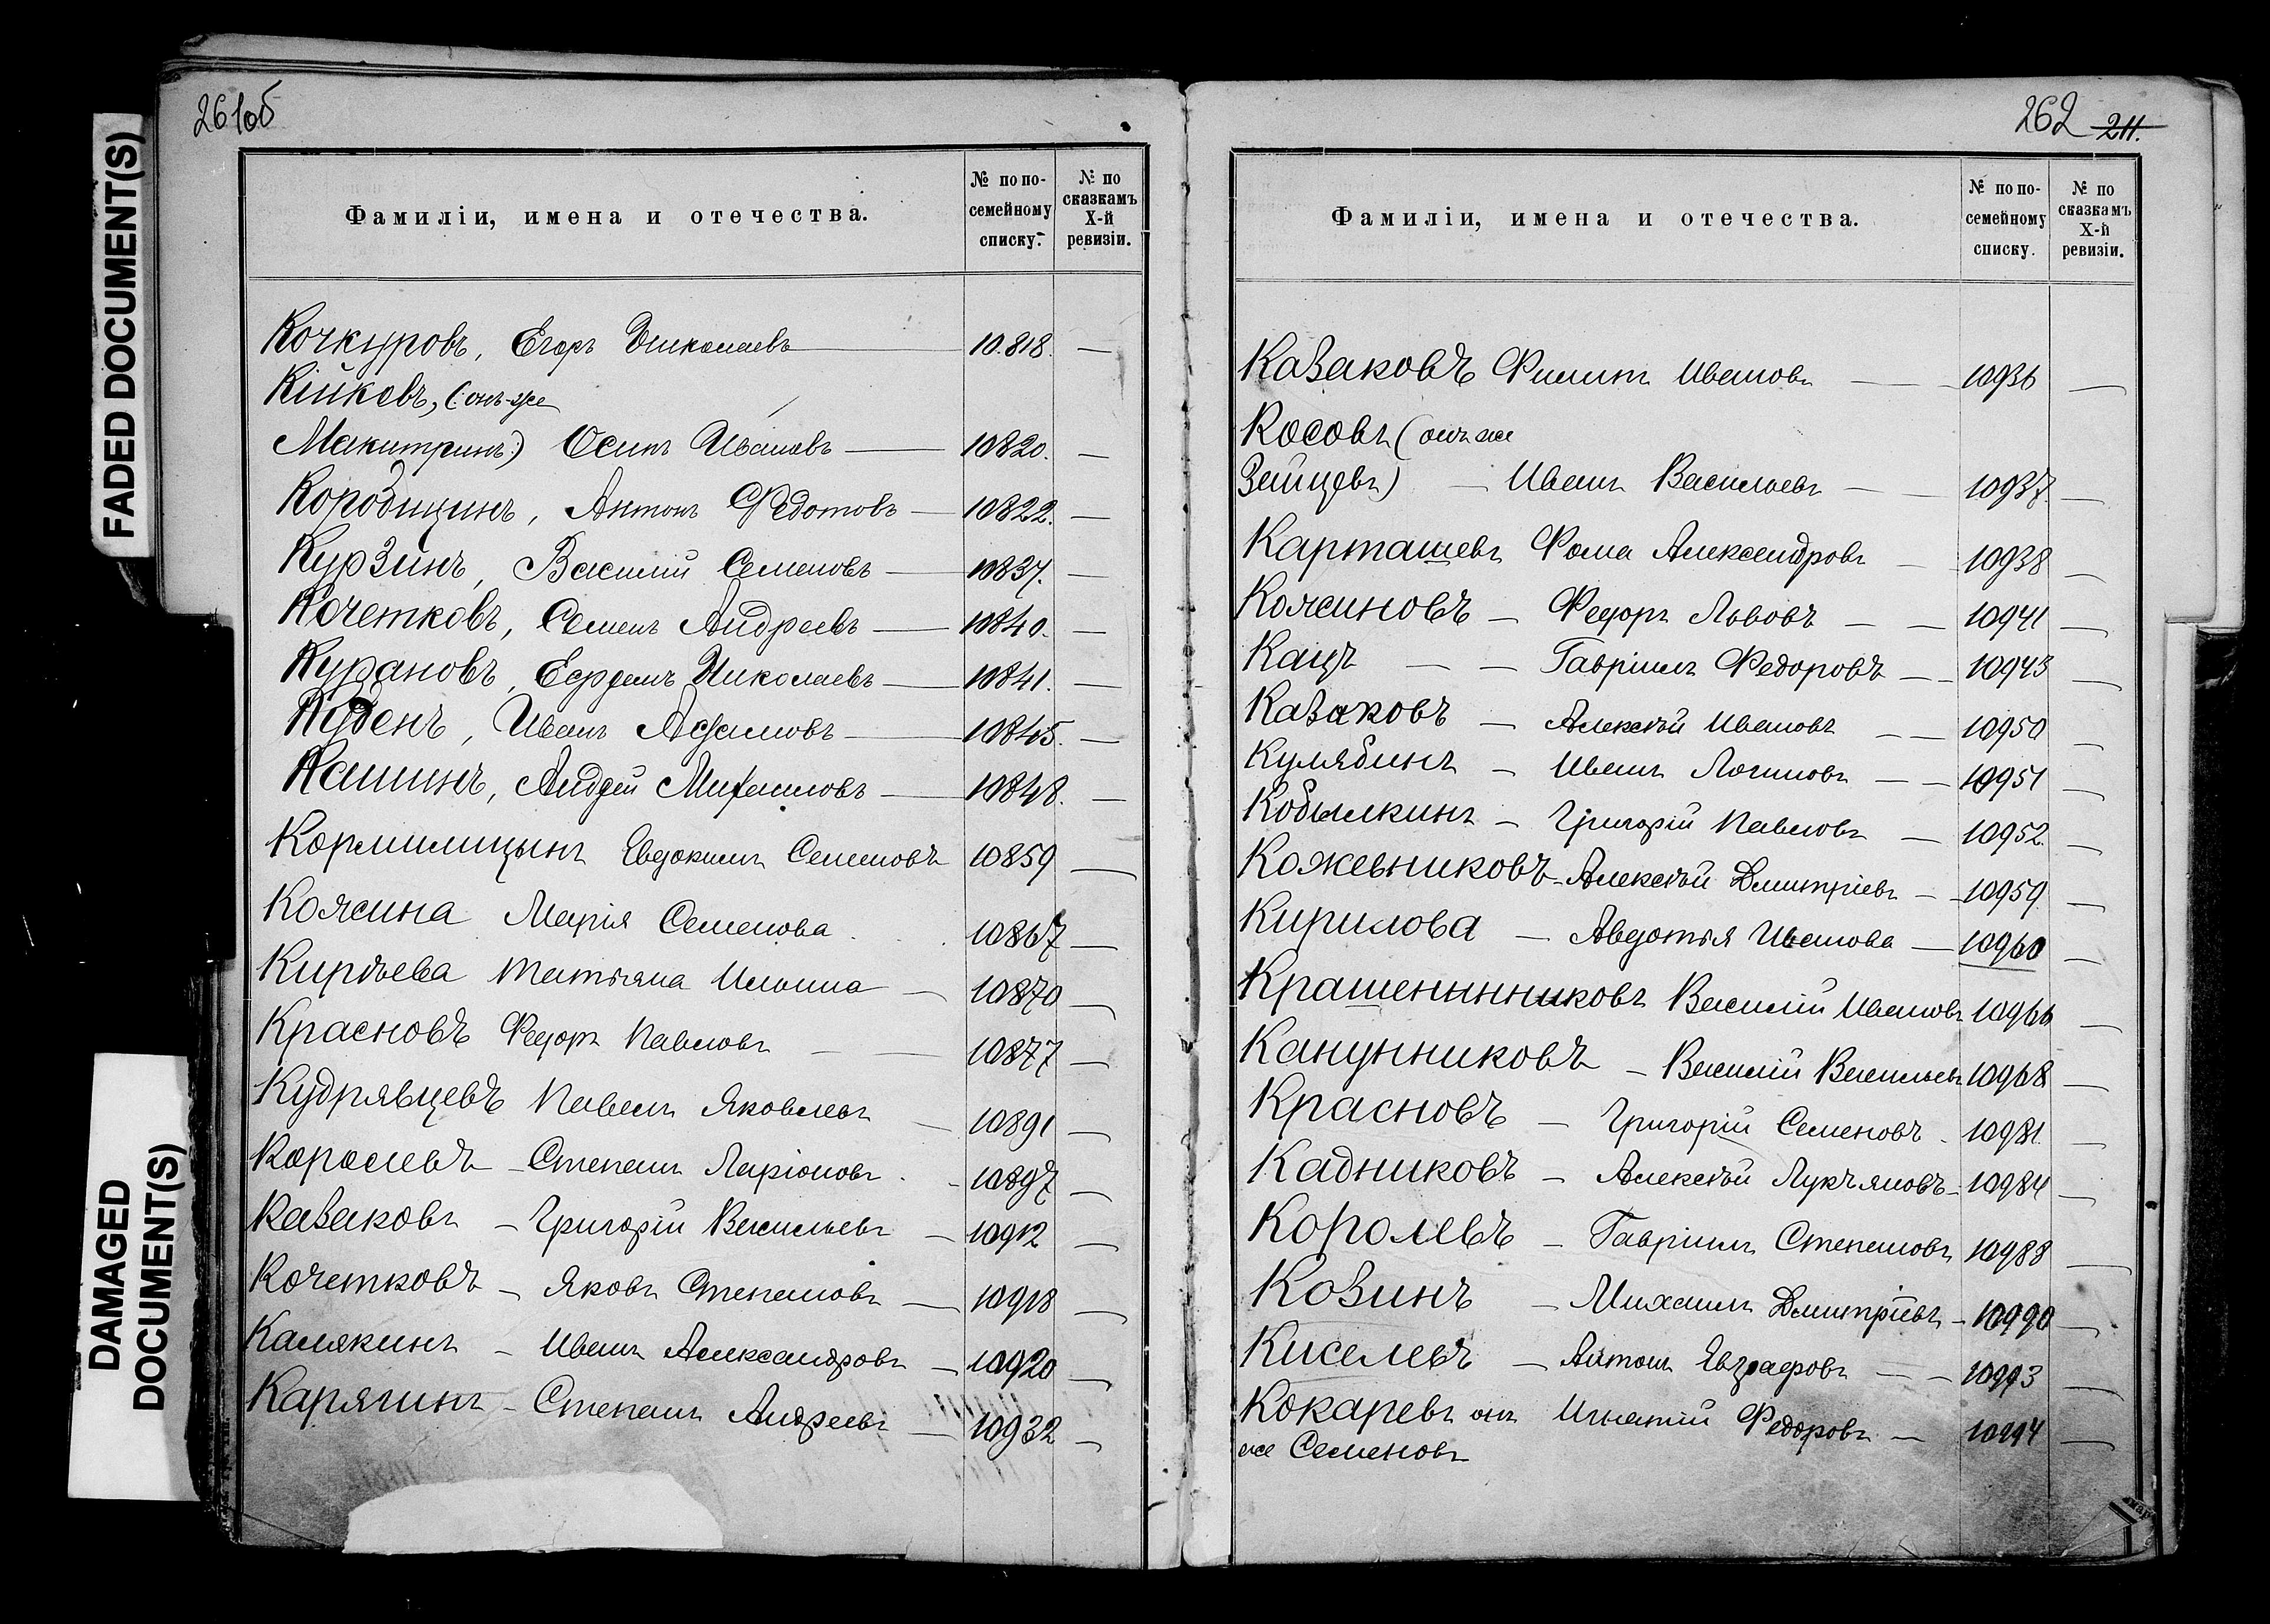 FADED DOCUMENT(S)
DAMAGED
DOCUMENT(S)
261об
Фамиліи, имена и отечества.
№ по по-
семейному
списку.
№ по
сказкамъ
X-й
ревизіи.
Кочкуровъ, Егоръ Николаевъ — 10.818. —
Кійковъ, (: онъ-же
Макитринъ:) Осипъ Ивановъ — 10820. —
Кородицинъ, Антонъ Федотовъ — 10822. —
Курзинъ, Василій Семеновъ — 10837. —
Кочетковъ, Семенъ Андреевъ — 10840. —
Курановъ, Ефремъ Николаевъ — 10841. —
Куденъ, Иванъ — 10845. —
Кашинъ, Андрей Михаиловъ — 10848. —
Кормилицынъ Евдокимъ Семеновъ 10859 —
Колсина Марія Семенова 10867 —
Киръева Татьяна Ильина — 10870 —
Красновъ Федоръ Павловъ — — 10877 —
Кудрявцевъ Павелъ Яковлевъ — 10891 —
Королевъ — Степанъ Ларіоновъ - 10897 —
Казаковъ — Григорій Васильевъ — 10912 —
Кочетковъ — Яковъ Степановъ — 10918 —
Калякинъ — Иванъ Александровъ — 10920 —
Карягинъ — Степанъ Андреевъ — 10932 —
262 211.
Фамиліи, имена и отечества.
№ по по-
семейному
списку.
№ по
сказкамъ
X-й
ревизіи.
Казаковъ Филипъ Ивановъ — 10936 —
Косовъ (онъ же
Зейцовъ) — Иванъ Васильевъ — — 10937 —
Карташевъ Фома Александровъ — 10938 —
Колсиновъ — Федоръ Львовъ — — 10941 —
Кацъ — — Гавріилъ Федоровъ — — 10943 —
Казаковъ — Алексѣй Ивановъ — — 10950 —
Кулябинъ — Иванъ Логиновъ — — 10951 —
Кобылкинъ — Григорій Павловъ — 10952. —
Кожевниковъ — Алексѣй Дмитріевъ — 10959 —
Кирилова — Авдотья Иванова — 10960 —
Крашенинниковъ Василій Ивановъ 10966 —
Канунниковъ — Василій Васильевъ 10968 —
Красновъ — Григорій Семеновъ - 10981 —
Кадниковъ — Алексѣй Лукъяновъ — 10984 —
Королевъ — Гавріилъ Степановъ 10988 —
Козинъ — Михаилъ Дмитріевъ — 10990 —
Киселевъ — Антонъ Евграфовъ — — 10993 —
Кокаревъ онъ Игнатій Федоровъ — 10994 —
же Семеновъ